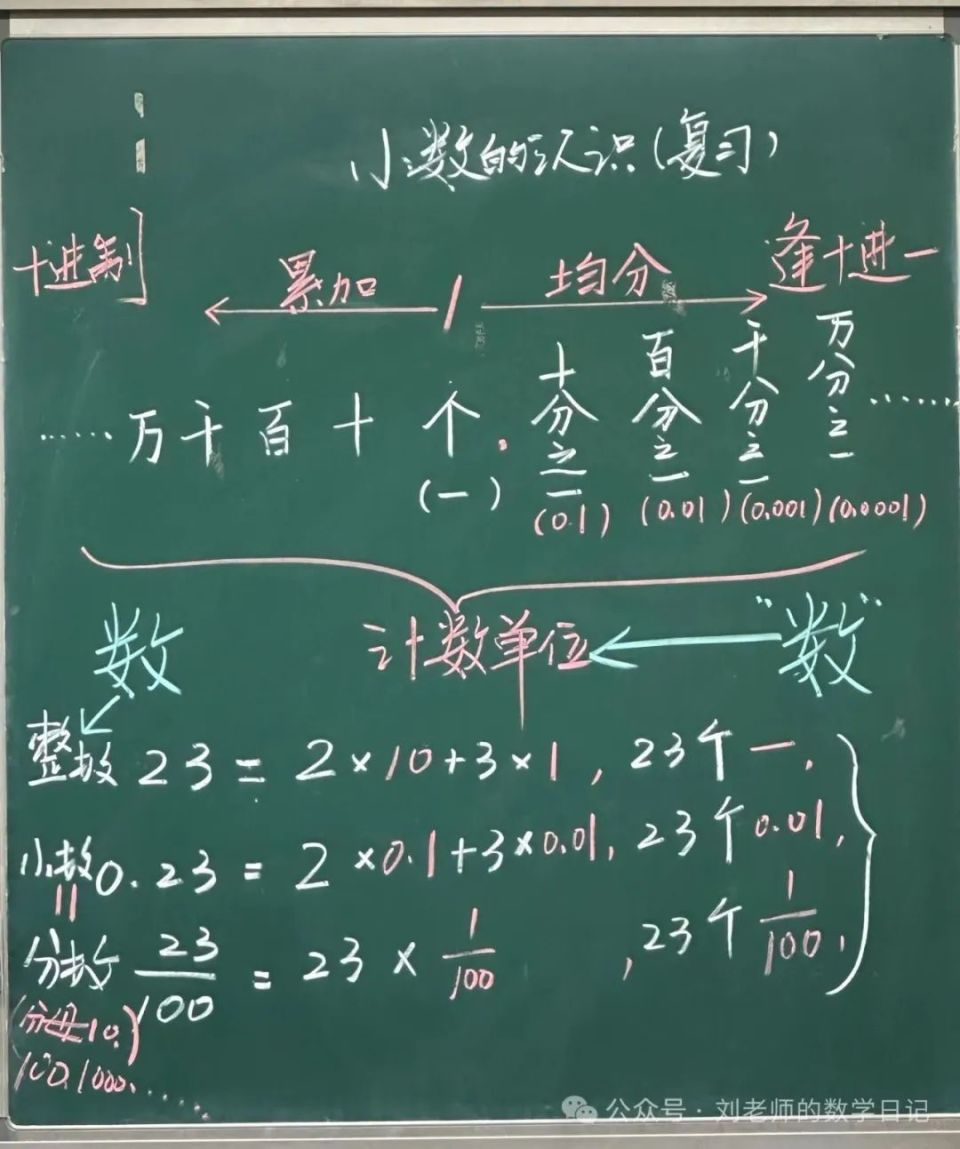 小数的认识(复习)
十进制 累加 1 均分 逢十进一
……万 千 百 十 个 . 十分之一 百分之一 千分之一 万分之一 ……
(一) (0.1) (0.01) (0.001) (0.0001)
数 计数单位 "数"
整数 23 = 2×10+3×1, 23个一.
小数 0.23 = 2×0.1+3×0.01, 23个0.01,
分数 23/100 = 23×1/100 , 23个1/100.
(分母10.)
100.1000.……
公众号·刘老师的数学日记